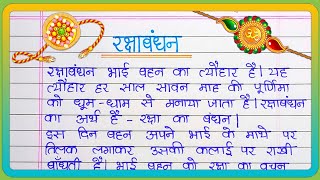 रक्षाबंधन
रक्षाबंधन भाई बहन का त्यौहार है। यह
त्यौहार हर साल सावन माह की पूर्णिमा
को धूम-धाम से मनाया जाता है। रक्षाबंधन
का अर्थ है - रक्षा का बंधन।
इस दिन बहन अपने भाई के माथे पर
तिलक लगाकर उसकी कलाई पर राखी
बाँधती हैं। भाई बहन को रक्षा का वचन